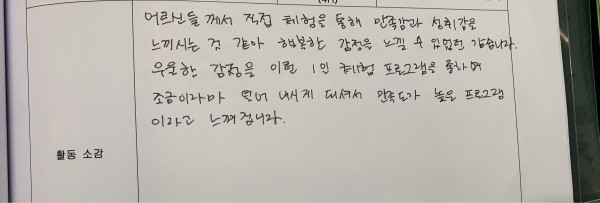 어르신들 께서 직접 체험을 통해 만족감과 성취감을
느끼시는 것 같아 행복한 감정을 느낄 수 있었던 같습니다.
우울한 감정을 이런 1인 체험 프로그램을 통하여
조금이라마 덜어 내시게 되셔서 만족도가 높은 프로그램
이라고 느껴집니다.
활동 소감